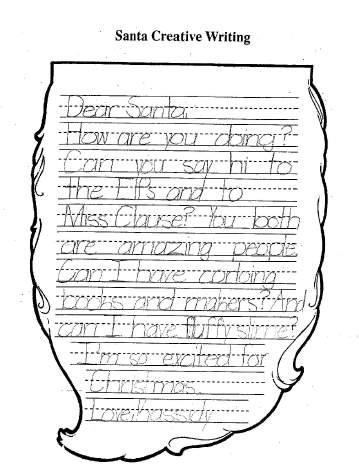 Santa Creative Writing
Dear Santa,
How are you doing?
Can you say hi to
the Elfs and to
Miss Clause? You both
are amazing people
Can I have
books and makers? And
can I have fluffy slime?
I'm so excited for
Christmas.
Love,